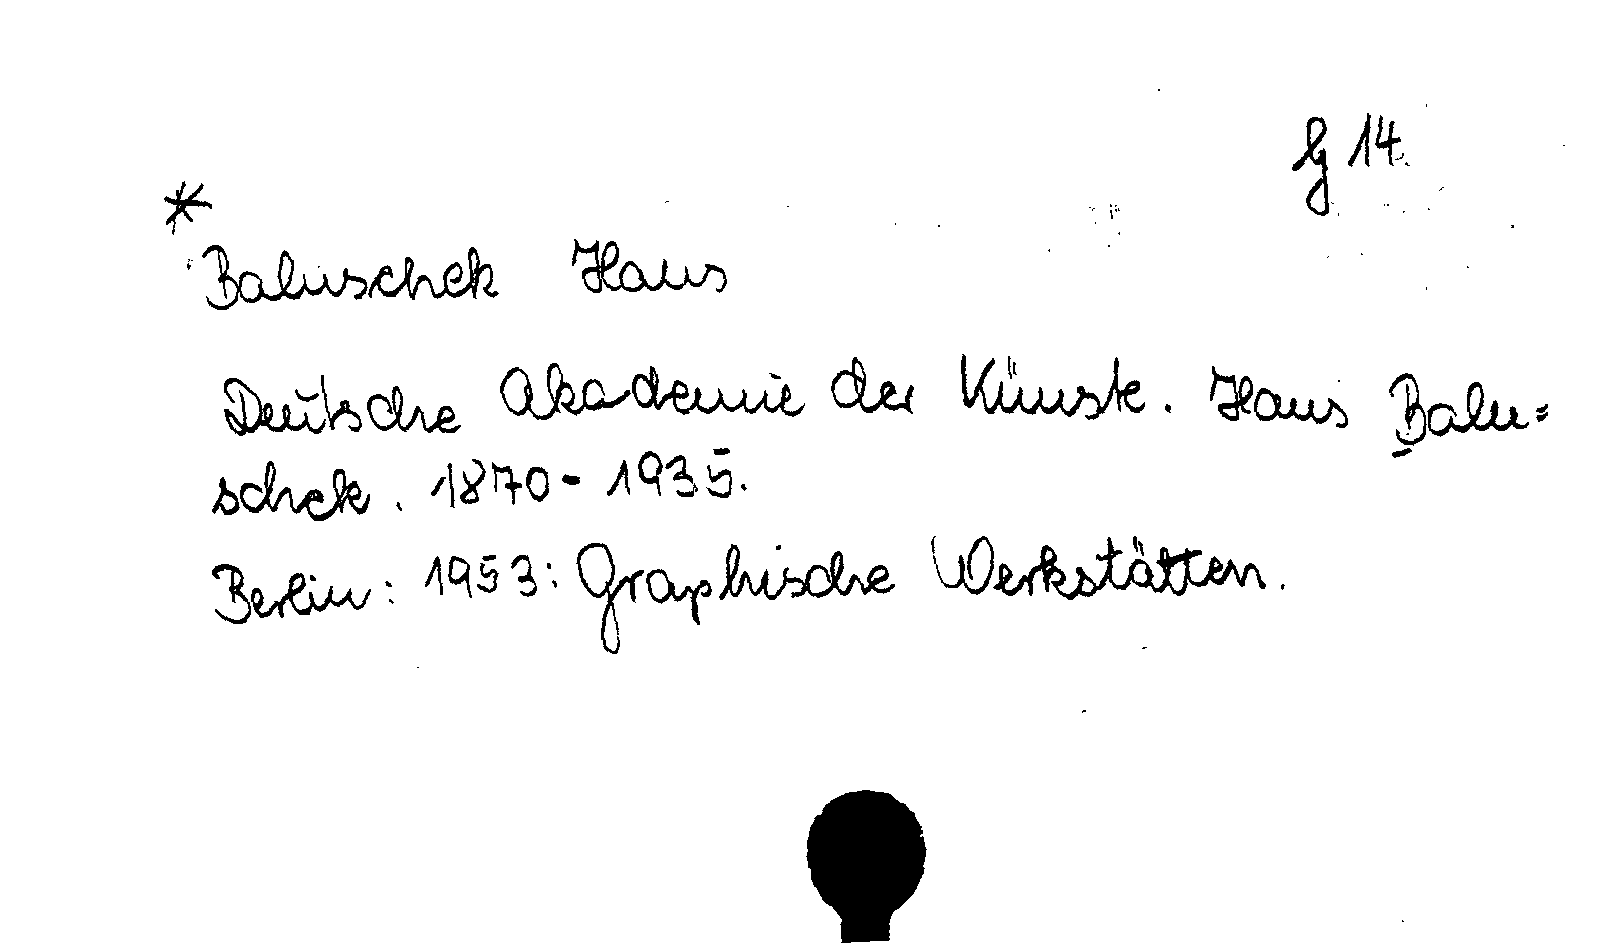 G 14.
*
Baluschek Hans
Deutsche Akademie der Künste. Hans Balu=
schek. 1870-1935.
Berlin: 1953: Graphische Werkstätten.